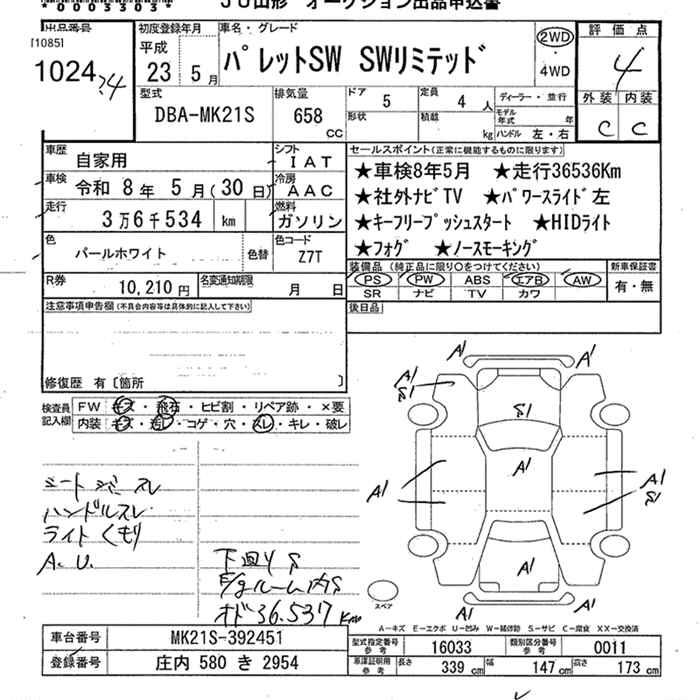 * 0 0 0 5 3 0 3 *
JU山形 オークション出品申込書
出品番号
[1085]
1024
初度登録年月
平成
23 5月
車名・グレード
パレットSW SWリミテッド
2WD
・
4WD
評価点
4
型式
DBA-MK21S
排気量
658
CC
ドア
5
形状
定員
4 人
積載
kg
ディーラー・並行
モデル年式 年
ハンドル 左・右
外装 内装
C C
車歴
自家用
シフト
IAT
車検
令和 8年 5月(30日)
冷房
AAC
走行
3万6千534 km
燃料
ガソリン
色
パールホワイト
色替
色コード
Z7T
R券
10,210円
名変通知期限
月 日
セールスポイント(正常に機能するものに限ります)
★車検8年5月 ★走行36536Km
★社外ナビTV ★パワースライド左
★キーフリープッシュスタート ★HIDライト
★フォグ ★ノースモーキング
装備品 (純正品に限り○をつけてください)
PS PW ABS エアB AW
SR ナビ TV カワ
新車保証書
有・無
後日品
注意事項申告欄(不具合内容等は具体的に記入して下さい)
修復歴 有〔箇所 〕
検査員記入欄
FW キズ・飛石・ヒビ割・リペア跡・×要
内装 キズ・汚レ・コゲ・穴・スレ・キレ・破レ
シートシミスレ
ハンドルスレ
ライトくもり
A.U.
下回りS
E/gルーム内S
オド36.537Km
A1 A1
A1
S1
S1
A1
A1 A1
S1
A1
A1 A1
スペア
A-キズ E-エクボ U-凹み W-補修跡 S-サビ C-腐食 XX-交換済
車台番号
MK21S-392451
登録番号
庄内 580 き 2954
型式指定番号
参考
16033
類別区分番号
参考
0011
車庫証明用
参考
長さ
339 cm
幅
147 cm
高さ
173 cm